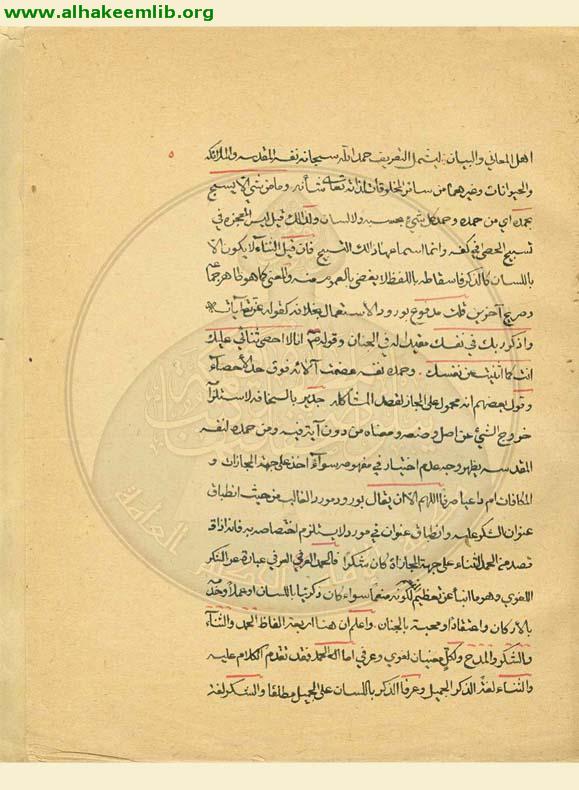 www.alhakeemlib.org
٥
اهل المعاني والبيان ليشمل التعريف حمد الله سبحانه نفسه المقدسة والملائكة
والحيوانات وغيرهما من سائر المخلوقات لقوله تعالى شأنه وما من شيء الا يسبح
بحمده اي من حمده وحمد كل شيء بحسبه ولا لسان ولذلك قيل ليس المعجزة في
تسبيح الحصى في كفه وانما اسماعها ذلك التسبيح فان قيل الثناء لا يكون الا
باللسان كالذكر فاسقاطه باللفظ لا يفضي بالعموم منه والمعنى كما هو ظاهر جماعة
وصريح آخرين قلت مدفوع بورود الاستعمال بخلافه كقوله عز من قائل
واذكر ربك في نفسك مقيد له في الجنان وقوله انا لا احصي ثنائي عليك
انت كما اثنيت على نفسك وحمده نفسه آلائه فوق حد الاحصاء
وقول بعضهم انه محمول على المجاز لقصد المشاكلة جدير بالسخافة لاستلزام
خروج الشيء عن اصل وضعه ومعناه من دون آية فيه ومن حمده لنفسه
المقدسة يظهر وجه عدم اختيار في مفهومه سواء اخذ على جهة المجازات و
المكافات ام اللهم الا ان يقال بورود مورد الغالب من حيث انطباق
عنوان الشكر عليه وانطباق عنوان في مورد لا يستلزم اختصاصه به فانه اذا
قصد من الحمد الثناء على جهة المجازاة كان شكرا فالحمد العرفي عبارة عن الشكر
اللغوي وهو ما انبأ عن تعظيم لكونه منعما سواء كان ذكريا باللسان او عملا وخدمة
بالاركان واعتقادا ومحبة بالجنان واعلم ان هنا اربعة الفاظ الحمد والثناء
والشكر والمدح ولكل معنيان لغوي وعرفي اما الحمد فقد تقدم الكلام عليه
والثناء لغة الذكر الجميل وعرفا الذكر باللسان على الجميل مطلقا والشكر لغة